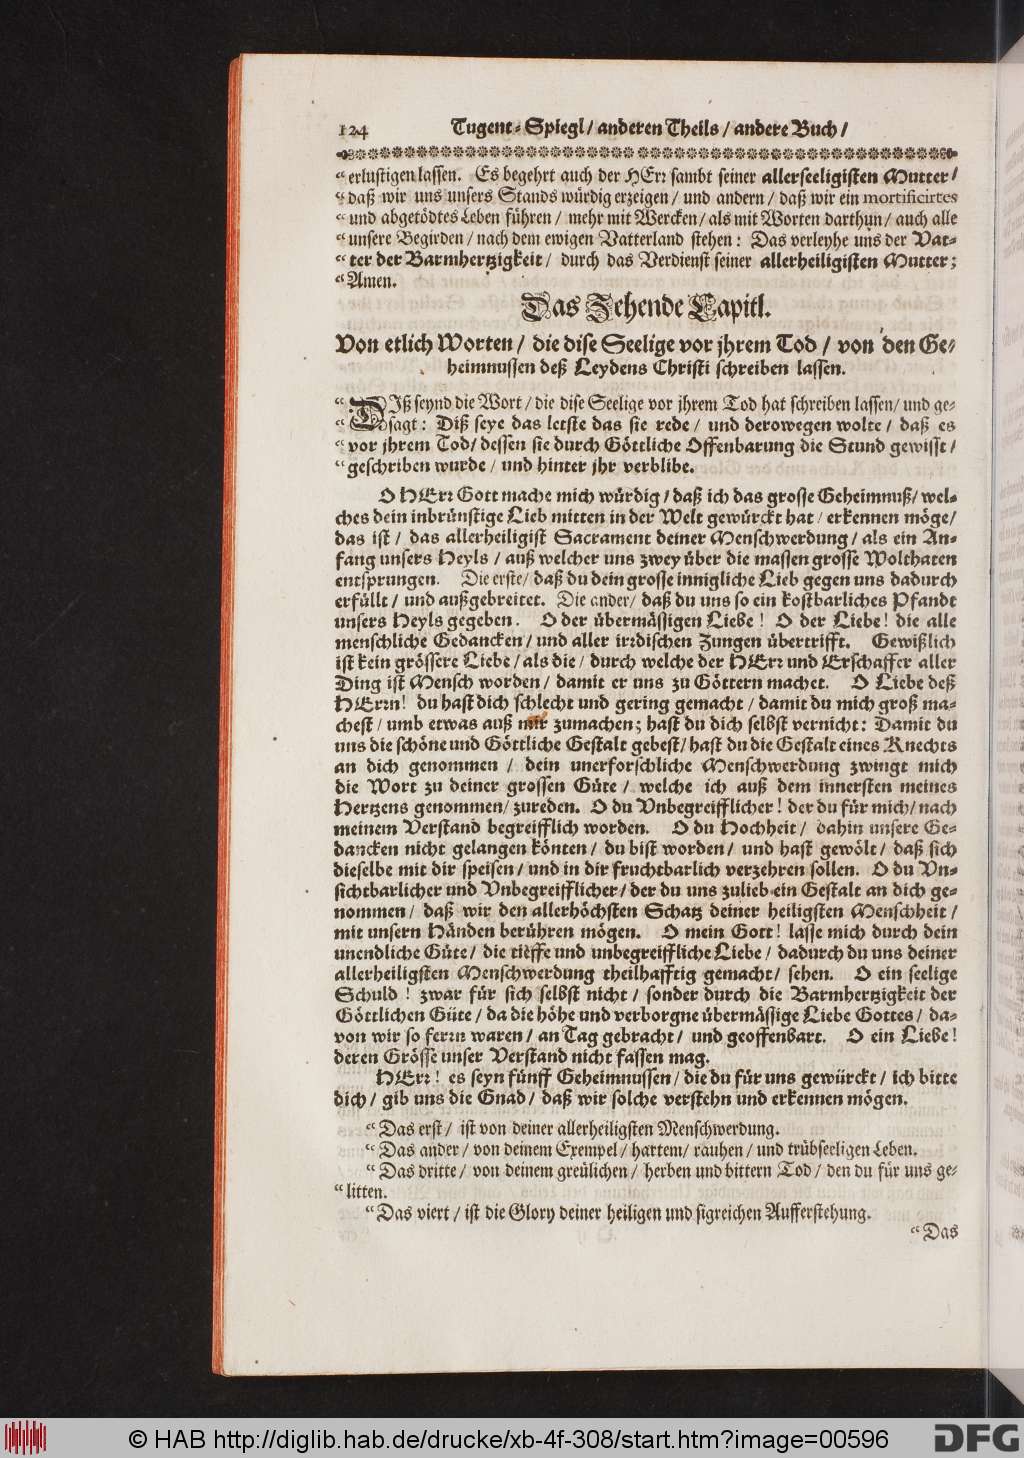 124 Tugent-Spiegl/ anderen Theils/ andere Buch/
“erlustigen lassen. Es begehrt auch der HErr sambt seiner allerseeligisten Mutter/
“daß wir uns unsers Stands würdig erzeigen/ und andern/ daß wir ein mortificirtes
“und abgetödtes Leben führen/ mehr mit Wercken/ als mit Worten darthun/ auch alle
“unsere Begirden/ nach dem ewigen Vatterland stehen: Das verleyhe uns der Vat-
“ter der Barmhertzigkeit/ durch das Verdienst seiner allerheiligisten Mutter;
“Amen.
Das Zehende Capitl.
Von etlich Worten/ die dise Seelige vor jhrem Tod/ von den Ge-
heimnussen deß Leydens Christi schreiben lassen.
“DIß seynd die Wort/ die dise Seelige vor jhrem Tod hat schreiben lassen/ und ge-
“sagt: Diß seye das letste das sie rede/ und derowegen wolte/ daß es
“vor jhrem Tod/ dessen sie durch Göttliche Offenbarung die Stund gewisst/
“geschriben wurde/ und hinter jhr verblibe.
O HErr Gott mache mich würdig/ daß ich das grosse Geheimnuß/ wel-
ches dein inbrünstige Lieb mitten in der Welt gewürckt hat/ erkennen möge/
das ist/ das allerheiligist Sacrament deiner Menschwerdung/ als ein An-
fang unsers Heyls/ auß welcher uns zwey über die massen grosse Wolthaten
entsprungen. Die erste/ daß du dein grosse innigliche Lieb gegen uns dadurch
erfüllt/ und außgebreitet. Die ander/ daß du uns so ein kostbarliches Pfandt
unsers Heyls gegeben. O der übermässigen Liebe! O der Liebe! die alle
menschliche Gedancken/ und aller irrdischen Zungen übertrifft. Gewißlich
ist kein grössere Liebe/ als die/ durch welche der HErr und Erschaffer aller
Ding ist Mensch worden/ damit er uns zu Göttern machet. O Liebe deß
HErrn! du hast dich schlecht und gering gemacht/ damit du mich groß ma-
chest/ umb etwas auß mir zumachen; hast du dich selbst vernicht: Damit du
uns die schöne und Göttliche Gestalt gebest/ hast du die Gestalt eines Knechts
an dich genommen/ dein unerforschliche Menschwerdung zwingt mich
die Wort zu deiner grossen Güte/ welche ich auß dem innersten meines
Hertzens genommen/ zureden. O du Vnbegreifflicher! der du für mich/ nach
meinem Verstand begreifflich worden. O du Hochheit/ dahin unsere Ge-
dancken nicht gelangen könten/ du bist worden/ und hast gewölt/ daß sich
dieselbe mit dir speisen/ und in dir fruchtbarlich verzehren sollen. O du Vn-
sichtbarlicher und Vnbegreifflicher/ der du uns zulieb ein Gestalt an dich ge-
nommen/ daß wir den allerhöchsten Schatz deiner heiligsten Menschheit/
mit unsern Händen berühren mögen. O mein Gott! lasse mich durch dein
unendliche Güte/ die tieffe und unbegreiffliche Liebe/ dadurch du uns deiner
allerheiligsten Menschwerdung theilhafftig gemacht/ sehen. O ein seelige
Schuld! zwar für sich selbst nicht/ sonder durch die Barmhertzigkeit der
Göttlichen Güte/ da die höhe und verborgne übermässige Liebe Gottes/ da-
von wir so ferrn waren/ an Tag gebracht/ und geoffenbart. O ein Liebe!
deren Grösse unser Verstand nicht fassen mag.
HErr! es seyn fünff Geheimnussen/ die du für uns gewürckt/ ich bitte
dich/ gib uns die Gnad/ daß wir solche verstehn und erkennen mögen.
“Das erst/ ist von deiner allerheiligsten Menschwerdung.
“Das ander/ von deinem Exempel/ hartem/ rauhen/ und trübseeligen Leben.
“Das dritte/ von deinem greülichen/ herben und bittern Tod/ den du für uns ge-
“litten.
“Das viert/ ist die Glory deiner heiligen und sigreichen Aufferstehung.
“Das
© HAB http://diglib.hab.de/drucke/xb-4f-308/start.htm?image=00596
DFG